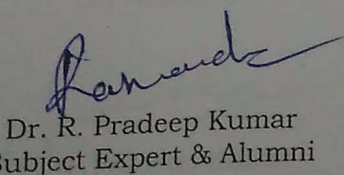 Dr. R. Pradeep Kumar
Subject Expert & Alumni